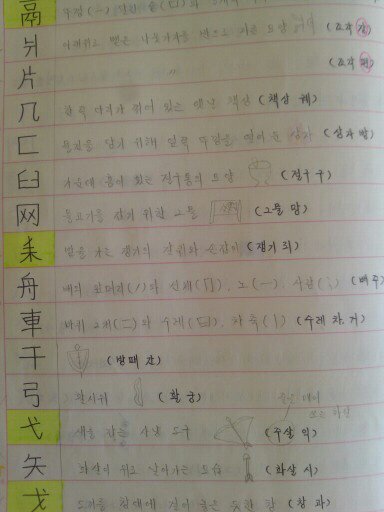 鬲 뚜껑(一) 덮인 솥(口)
爿 아래위로 뻗은 나뭇가지를 반으로 자른 모양 (조각 장)
片 〃 (조각 편)
几 한쪽 다리가 꺾여 있는 옛날 책상 (책상 궤)
匚 물건을 담기 위해 한쪽 뚜껑을 열어 둔 상자 (상자 방)
臼 가운데 홈이 있는 절구통의 모양 (절구 구)
网 물고기를 잡기 위한 그물 (그물 망)
耒 밭을 가는 쟁기의 손잡이 (쟁기 뢰)
舟 배의 (丿)와 선체(冂), 노(一), 사람(冫) (배 주)
車 바퀴 2개(二)와 수레(口), 차축(丨) (수레 차, 거)
干 (방패 간)
弓 활시위 (활 궁)
弋 새를 잡는 사냥 도구 (주살 익)
쏘는 화살
矢 화살이 위로 날아가는 모습 (화살 시)
戈 (창 과)